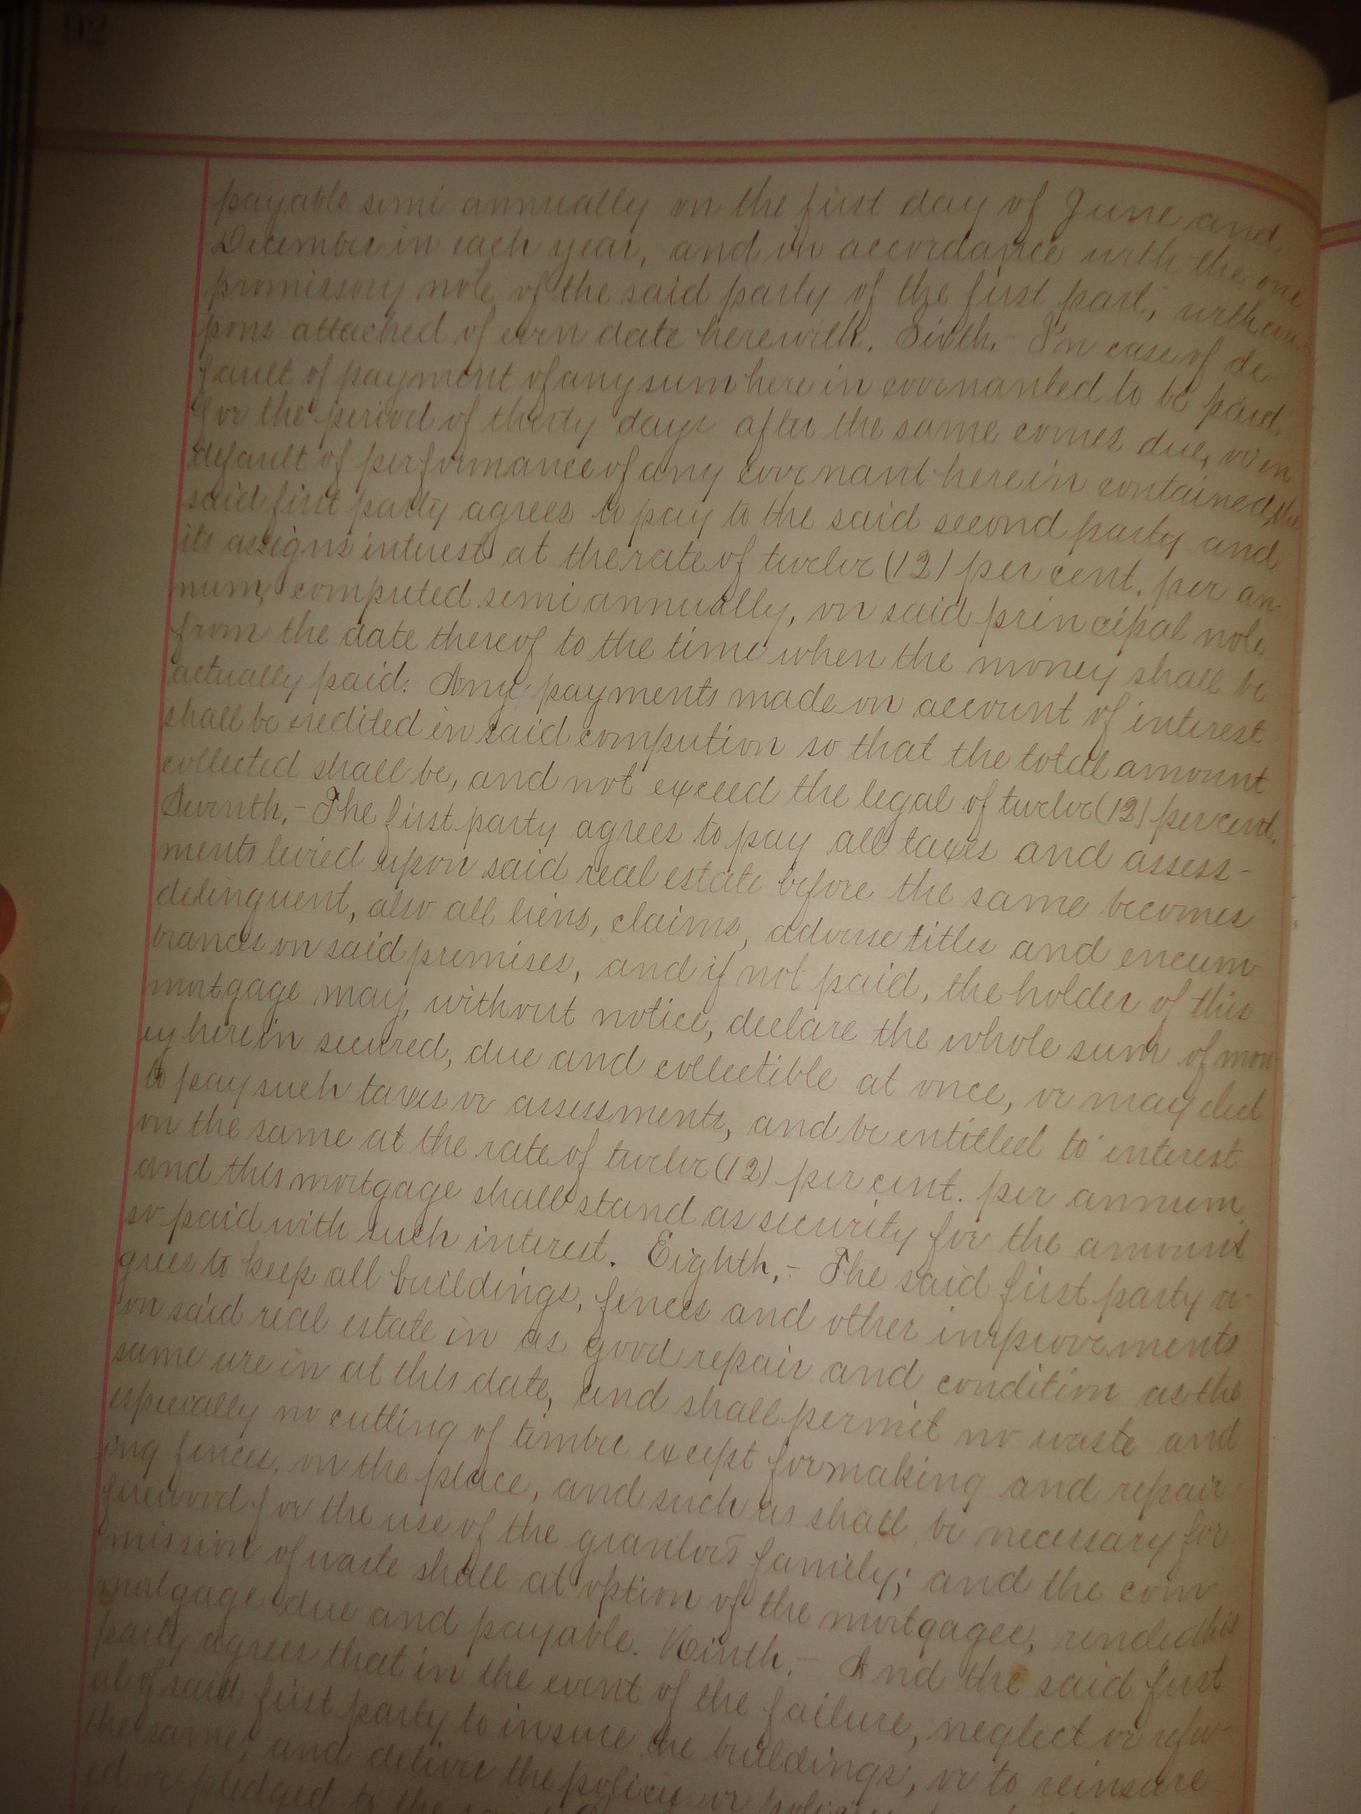 92
payable semi annually on the first day of June and
December in each year, and in accordance with the one
promissory note of the said party of the first part, with cou-
pons attached of even date herewith. Sixth.- In case of de-
fault of payment of any sum herein covenanted to be paid
for the period of thirty days after the same comes due, or in
default of performance of any covenant herein contained, the
said first party agrees to pay to the said second party and
its assigns interest at the rate of twelve (12) per cent. per an-
num, computed semi annually, on said principal note
from the date thereof to the time when the money shall be
actually paid. Any payments made on account of interest
shall be credited in said compution so that the total amount
collected shall be, and not exceed the legal of twelve (12) per cent.
Seventh.- The first party agrees to pay all taxes and assess-
ments levied upon said real estate before the same becomes
delinquent, also all liens, claims, adverse titles and encum-
brances on said premises, and if not paid, the holder of this
mortgage may, without notice, declare the whole sum of mon-
ey herein secured, due and collectible at once, or may elect
to pay such taxes or assessments, and be entitled to interest
on the same at the rate of twelve (12) per cent. per annum
and this mortgage shall stand as security for the amount
so paid with such interest. Eighth.- The said first party a-
grees to keep all buildings, fences and other improvements
on said real estate in as good repair and condition as the
same are in at this date, and shall permit no waste and
especially no cutting of timber except for making and repair-
ing fences, on the place, and such as shall be necessary for
firewood for the use of the grantors family; and the com
mission of waste shall at option of the mortgagee, render this
mortgage due and payable. Ninth.- And the said first
party agrees that in the event of the failure, neglect or refus-
al of said first party to insure the buildings, or to reinsure
the same, and deliver the policy or
ed or pledged to the